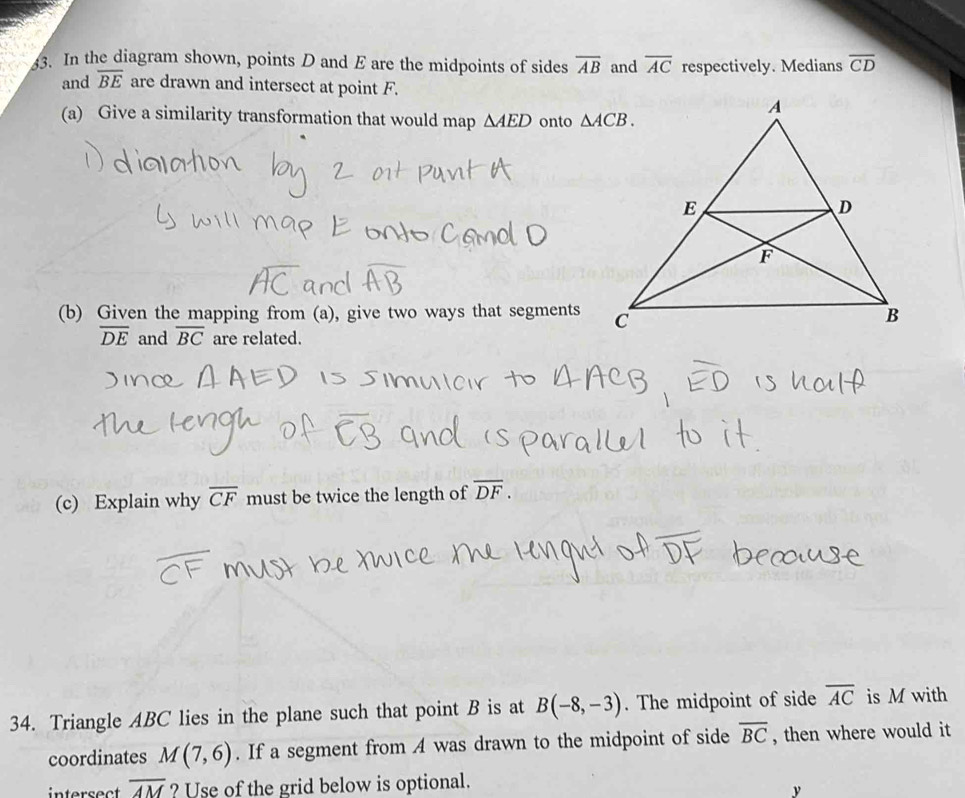 33. In the diagram shown, points D and E are the midpoints of sides AB and AC respectively. Medians CD
and BE are drawn and intersect at point F.
(a) Give a similarity transformation that would map ΔAED onto ΔACB.
1) dialation by 2 at punt A
↳ will map E onto C and D
AC and AB
A
E
D
F
C
B
(b) Given the mapping from (a), give two ways that segments
DE and BC are related.
Since Δ AED is simular to Δ ACB, ED is half
the lengh of CB and is parallel to it.
(c) Explain why CF must be twice the length of DF.
CF must be twice the lenght of DF because
34. Triangle ABC lies in the plane such that point B is at B(-8,-3). The midpoint of side AC is M with
coordinates M(7,6). If a segment from A was drawn to the midpoint of side BC, then where would it
intersect AM? Use of the grid below is optional.
y